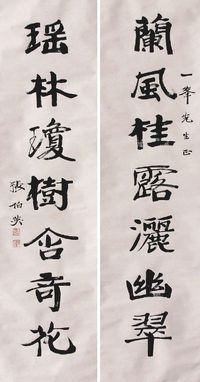 一峯先生正
蘭風桂露灑幽翠
瑶林瓊樹含奇花
張伯英